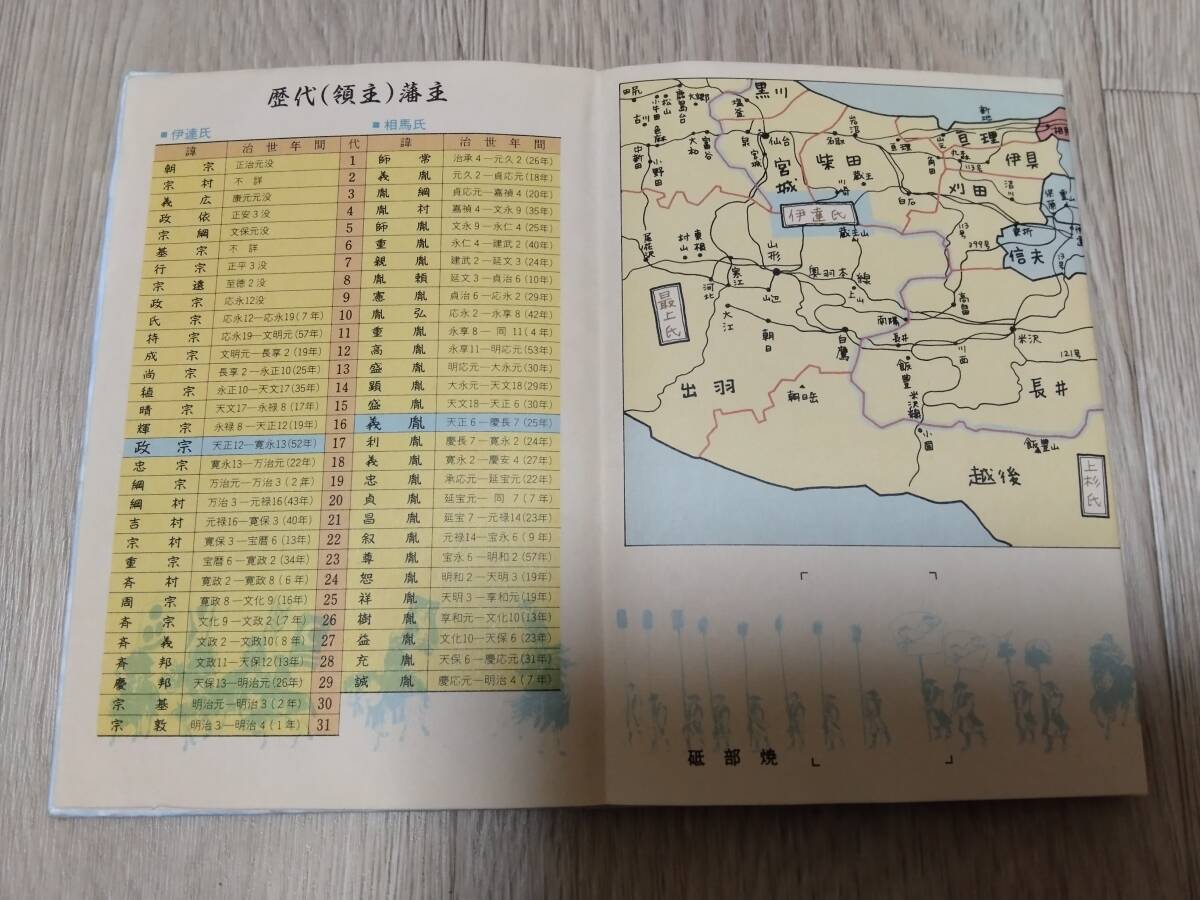 歴代(領主)藩主
■伊達氏
■相馬氏
諱 治世年間 代 諱 治世年間
朝宗 正治元没 1 師常 治承4―元久2(26年)
宗村 不詳 2 義胤 元久2―貞応元(18年)
義広 康元元没 3 胤綱 貞応元―嘉禎4(20年)
政依 正安3没 4 胤村 嘉禎4―文永9(35年)
宗綱 文保元没 5 師胤 文永9―永仁4(25年)
基宗 不詳 6 重胤 永仁4―建武2(40年)
行宗 正平3没 7 親胤 建武2―延文3(24年)
宗遠 至徳2没 8 胤頼 延文3―貞治6(10年)
政宗 応永12没 9 憲胤 貞治6―応永2(29年)
氏宗 応永12―応永19(7年) 10 胤弘 応永2―永享8(42年)
持宗 応永19―文明元(57年) 11 重胤 永享8―同11(4年)
成宗 文明元―長享2(19年) 12 高胤 永享11―明応元(53年)
尚宗 長享2―永正10(25年) 13 盛胤 明応元―大永元(30年)
稙宗 永正10―天文17(35年) 14 顕胤 大永元―天文18(29年)
晴宗 天文17―永禄8(17年) 15 盛胤 天文18―天正6(30年)
輝宗 永禄8―天正12(19年) 16 義胤 天正6―慶長7(25年)
政宗 天正12―寛永13(52年) 17 利胤 慶長7―寛永2(24年)
忠宗 寛永13―万治元(22年) 18 義胤 寛永2―慶安4(27年)
綱宗 万治元―万治3(2年) 19 忠胤 承応元―延宝元(22年)
綱村 万治3―元禄16(43年) 20 貞胤 延宝元―同7(7年)
吉村 元禄16―寛保3(40年) 21 昌胤 延宝7―元禄14(23年)
宗村 寛保3―宝暦6(13年) 22 叙胤 元禄14―宝永6(9年)
重宗 宝暦6―寛政2(34年) 23 尊胤 宝永6―明和2(57年)
斉村 寛政2―寛政8(6年) 24 恕胤 明和2―天明3(19年)
周宗 寛政8―文化9(16年) 25 祥胤 天明3―享和元(19年)
斉宗 文化9―文政2(7年) 26 樹胤 享和元―文化10(13年)
斉義 文政2―文政10(8年) 27 益胤 文化10―天保6(23年)
斉邦 文政11―天保12(13年) 28 充胤 天保6―慶応元(31年)
慶邦 天保13―明治元(26年) 29 誠胤 慶応元―明治4(7年)
宗基 明治元―明治3(2年) 30
宗敦 明治3―明治4(1年) 31
田尻
小牛田
松山
鹿島台
大郷
塩釜
黒川
古川
色麻
大和
富谷
泉
宮城
仙台
名取
岩沼
亘理
新地
相馬
亘理
伊具
丸森
角田
113号
中新田
小野田
宮城
柴田
蔵王
川崎
白石
刈田
伊達氏
蔵王山
113号
399号
信夫
13号
尾花沢
村山
東根
寒江
山形
奥羽本線
上山
河北
山辺
大江
朝日
最上氏
白鷹
南陽
長井
高畠
川西
米沢
121号
飯豊
米沢線
長井
出羽
朝日岳
小国
飯豊山
越後
上杉氏
砥部焼